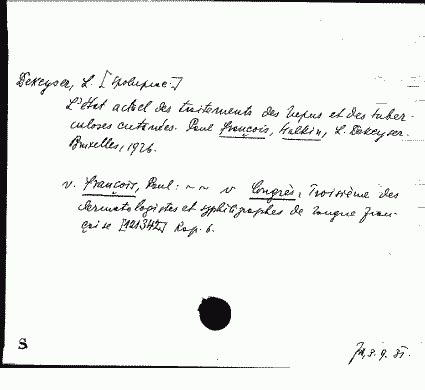 Dekeyser, L. [spoluprac.]
L'état actuel des traitements des lupus et des tuber-
culoses cutanées. Paul François, Halkin, L. Dekeyser.
Bruxelles, 1926.
v. François, Paul: ~ ~ v Congrès, Troisième des
dermatologistes et syphiligraphes de langue fran-
çaise [121342] Rap. 6.
S
9. 51.